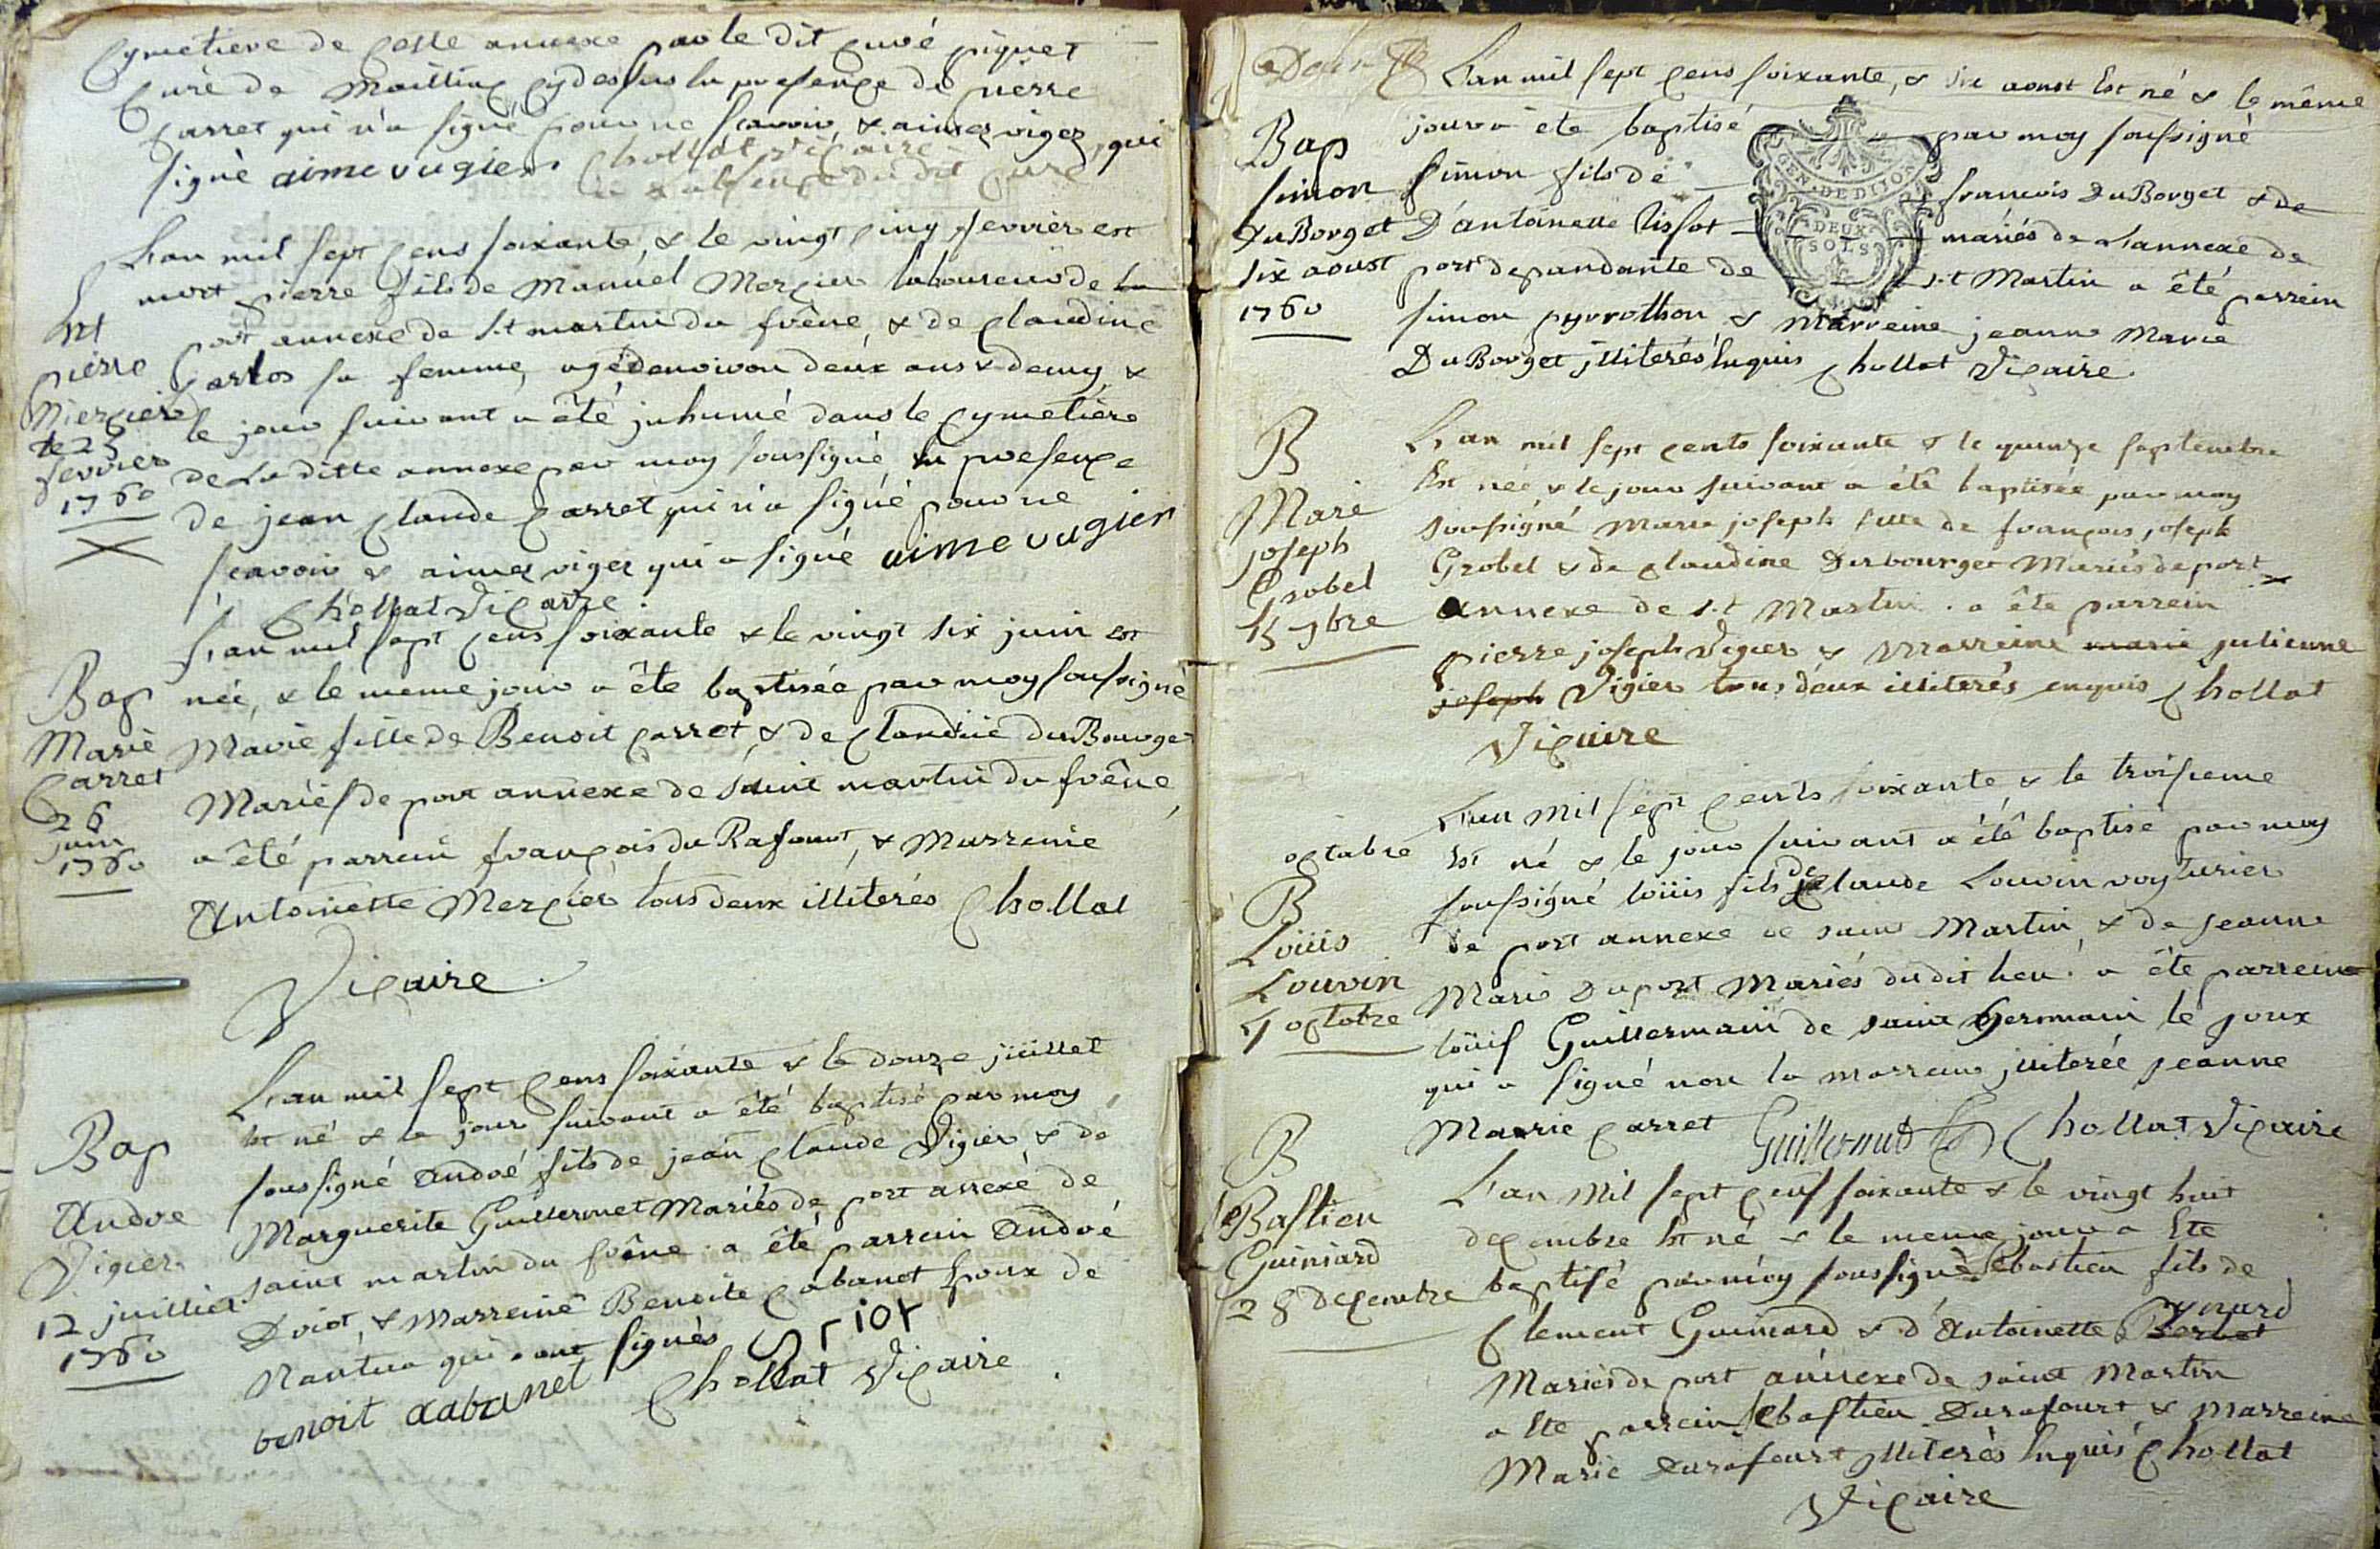 Cymetiere de Cette annexe par le dit Curé piquet
Curé de Maillia Cydessus En presence de pierre
Carret qui n'a signé pour ne scavoir, & aimez viger, qui
signè aime vugier Chollat vicaire
en l'absence du dit Curé
L'an mil sept Cens soixante, & le vingt cinq fevrier est
mort pierre fils de Manuel Mercier laboureur de
port annexe de St martin du frêne & de Claudine
Carlos sa femme, agé denviron deux ans & demy, &
le jour suivant a été jnhumé dans le Cymetière
de La ditte annexe par moy soussigné, En presence
de jean Claude Carret qui n'a signé pour ne
scavoir & aimez viger qui a signé aime vugier
Chollat Vicaire
Ent
pierre
Mercier
le 25
fevrier
1760
L'an mil sept Cens soixante & le vingt six juin est
née, & le meme jour a ête baptisée par moy soussigné
Marie fille de Benoit Carret & de Claudine du Bourget
Mariés de port annexe de Saint martin du frêne,
a êté parrain françois du Rafourt, & Marreinie
Antoinette Mercier tous deux illiterés Chollat
Vicaire.
Bap
Marie
Carret
26
juin
1760
L'an mil sept Cens soixante & le douze jüillet
Est né & le jour suivant a êté baptisé par moy
soussigné André fils de jean Claude Vigier & de
Marguerite Guillermet Mariés de port anexé de
saint martin du frêne. a êté parrain André
Driot, & Marreine Benoite Cabanet Epoux de
Nantua qui ont signés Driot
benoit cabanet Chollat Vicaire.
Bap
Andre
Vigier
12 juillet
1760
L'an mil sept Cens soixante, & six aoust Est né & le même
jour a ête baptisé par moy soussigné
Simon fils de françois Du Borget & de
D'antoinette Tissot mariés de L'annexe de
port depandante de St Martin a été parrein
simon pyrrothon & Marreine jeanne Marie
Du Borget jlliterés Enquis Chollat Vicaire.
GEN. DE DIJON
DEUX
SOLS
Bap
simon
Du Borget
six aoust
1760
L'an mil sept cents soixante & le quinze septembre
Est née, & le jour suivant a été baptisée par moy
soussigné Marie joseph fille de françois joseph
Grobel & de Claudine Durbourget Mariés de port
annexe de St Martin. a ête parrein
pierre joseph Vigier & Marreine marie julienne
joseph Vigier tous deux illiterés enquis Chollat
Vicaire
B
Marie
joseph
Grobel
15 7bre
L'an mil sept Cents soixante, & le troisieme
octobre Est né & le jour suivant a êté baptisé par moy
soussigné loüis fils de Claude Louvin voyturier
de port annexe de saint Martin, & de Jeanne
Marie Duport Mariés dudit lieu. a été parrein
loüis Guillermain de saint Germain le joux
qui a signé non la marreine jlliterée jeanne
Marie Carret Guillermet Chollat Vicaire
B
Loüis
Louvin
4 octobre
L'an Mil sept Cens soixante & le vingt huit
decembre Est né & le meme jour a Ete
baptisé par moy soussigné Sebastien fils de
Clement Guiniard & d'Antoinette Berbet
Mariés de port annexe de saint Martin
a Ete parrein Sebastien Durafourt & Marreine
Marie Durafourt jlliterés Enquis Chollat
Vicaire
B
Bastien
Guiniard
28 decembre